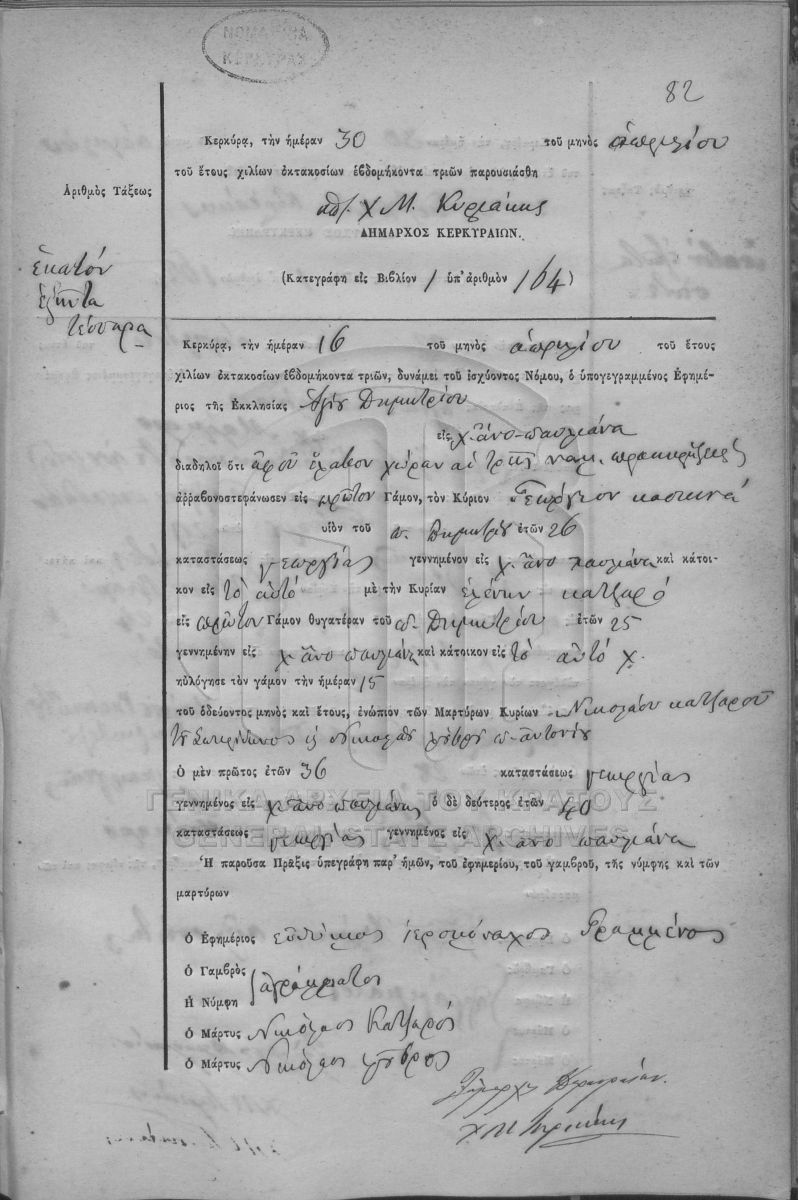 ΝΟΜΑΡΧΙΑ
ΚΕΡΚΥΡΑΣ
82
Κερκύρᾳ, τὴν ἡμέραν 30 τοῦ μηνὸς ἀπριλίου
τοῦ ἔτους χιλίων ὀκτακοσίων ἑβδομήκοντα τριῶν παρουσιάσθη
Ἀριθμὸς Τάξεως
Χ Μ. Κυριάκης
ΔΗΜΑΡΧΟΣ ΚΕΡΚΥΡΑΙΩΝ.
Ἑκατὸν
ἑξῆντα
τέσσαρα
(Κατεγράφη εἰς Βιβλίον 1 ὑπ' ἀριθμὸν 164)
Κερκύρᾳ, τὴν ἡμέραν 16 τοῦ μηνὸς ἀπριλίου τοῦ ἔτους
χιλίων ὀκτακοσίων ἑβδομήκοντα τριῶν, δυνάμει τοῦ ἰσχύοντος Νόμου, ὁ ὑπογεγραμμένος Ἐφημέ-
ριος τῆς Ἐκκλησίας Ἁγίου Δημητρίου
εἰς χ. ἄνο-παυλιάνα
διαδηλοῖ ὅτι ἀφοῦ ἔλαβον χώραν αἱ τρεῖς
ἀρραβονοστεφάνωσεν εἰς πρῶτον Γάμον, τὸν Κύριον Γεώργιον κασκινά
υἱὸν τοῦ π. Δημητρίου ἐτῶν 26
καταστάσεως γεωργίας γεννημένον εἰς χ. ἄνο παυλιάνα καὶ κάτοι-
κον εἰς τὸ αὐτό μὲ τὴν Κυρίαν ἑλένην κατζαρό
εἰς πρῶτον Γάμον θυγατέραν τοῦ π. Δημητρίου ἐτῶν 25
γεννημένην εἰς χ. ἄνο παυλιάνα καὶ κάτοικον εἰς τὸ αὐτό χ.
ηὐλόγησε τὸν γάμον τὴν ἡμέραν 15
τοῦ ὁδεύοντος μηνὸς καὶ ἔτους, ἐνώπιον τῶν Μαρτύρων Κυρίων Νικολάου κατζαροῦ
τοῦ Σπυρίδωνος Νικολάου π. ἀντονίου
Ὁ μὲν πρῶτος ἐτῶν 36 καταστάσεως γεωργίας
γεννημένος εἰς χ. ἄνο παυλιάνα ὁ δὲ δεύτερος ἐτῶν 40
ΓΕΝΙΚΑ ΑΡΧΕΙΑ ΤΟΥ ΚΡΑΤΟΥΣ
καταστάσεως γεωργίας γεννημένος εἰς χ. ἄνο παυλιάνα
GENERAL STATE ARCHIVES
Ἡ παροῦσα Πρᾶξις ὑπεγράφη παρ' ἡμῶν, τοῦ ἐφημερίου, τοῦ γαμβροῦ, τῆς νύμφης καὶ τῶν
μαρτύρων
Ὁ Ἐφημέριος εὐθύμιος ἱερομόναχος Γραμμένος
Ὁ Γαμβρὸς
ἀγράμματοι
Ἡ Νύμφη
Ὁ Μάρτυς Νικόλαος Κατζαρός
Ὁ Μάρτυς Νικόλαος
Δήμαρχος Κερκυραίων
Χ Μ Κυριάκης